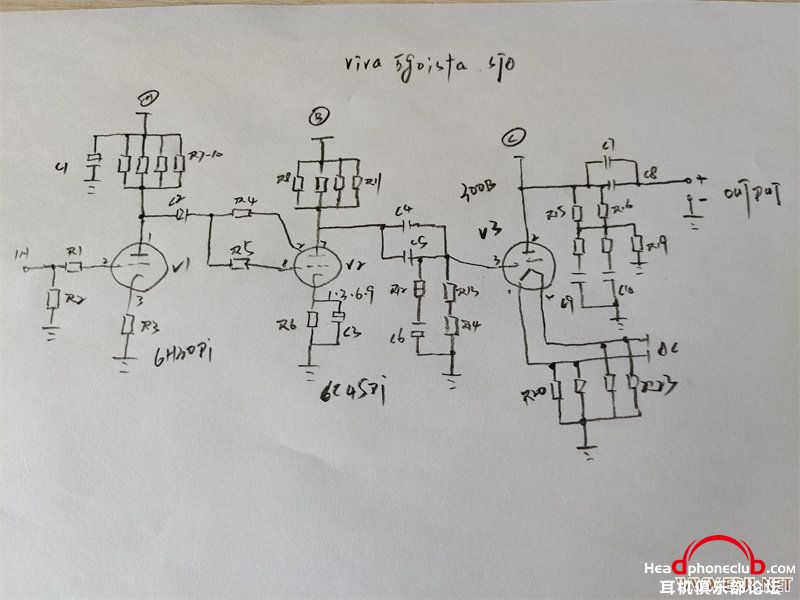 viva Egoista 5j0
A
B
C
C1
R7-10
R8
R11
C7
C8
+
-
OUTPUT
300B
C2
R4
C4
R5
C5
V3
R15
R16
R19
IN
R1
2
1
V1
2
7
8
V2
3
2
R2
3
R3
1.3.6.9
R6
C3
R12
R13
R14
C6
C9
C10
6H30Pi
6C45Pi
DC
R20
R23
Headphoneclub.com
耳机俱乐部论坛